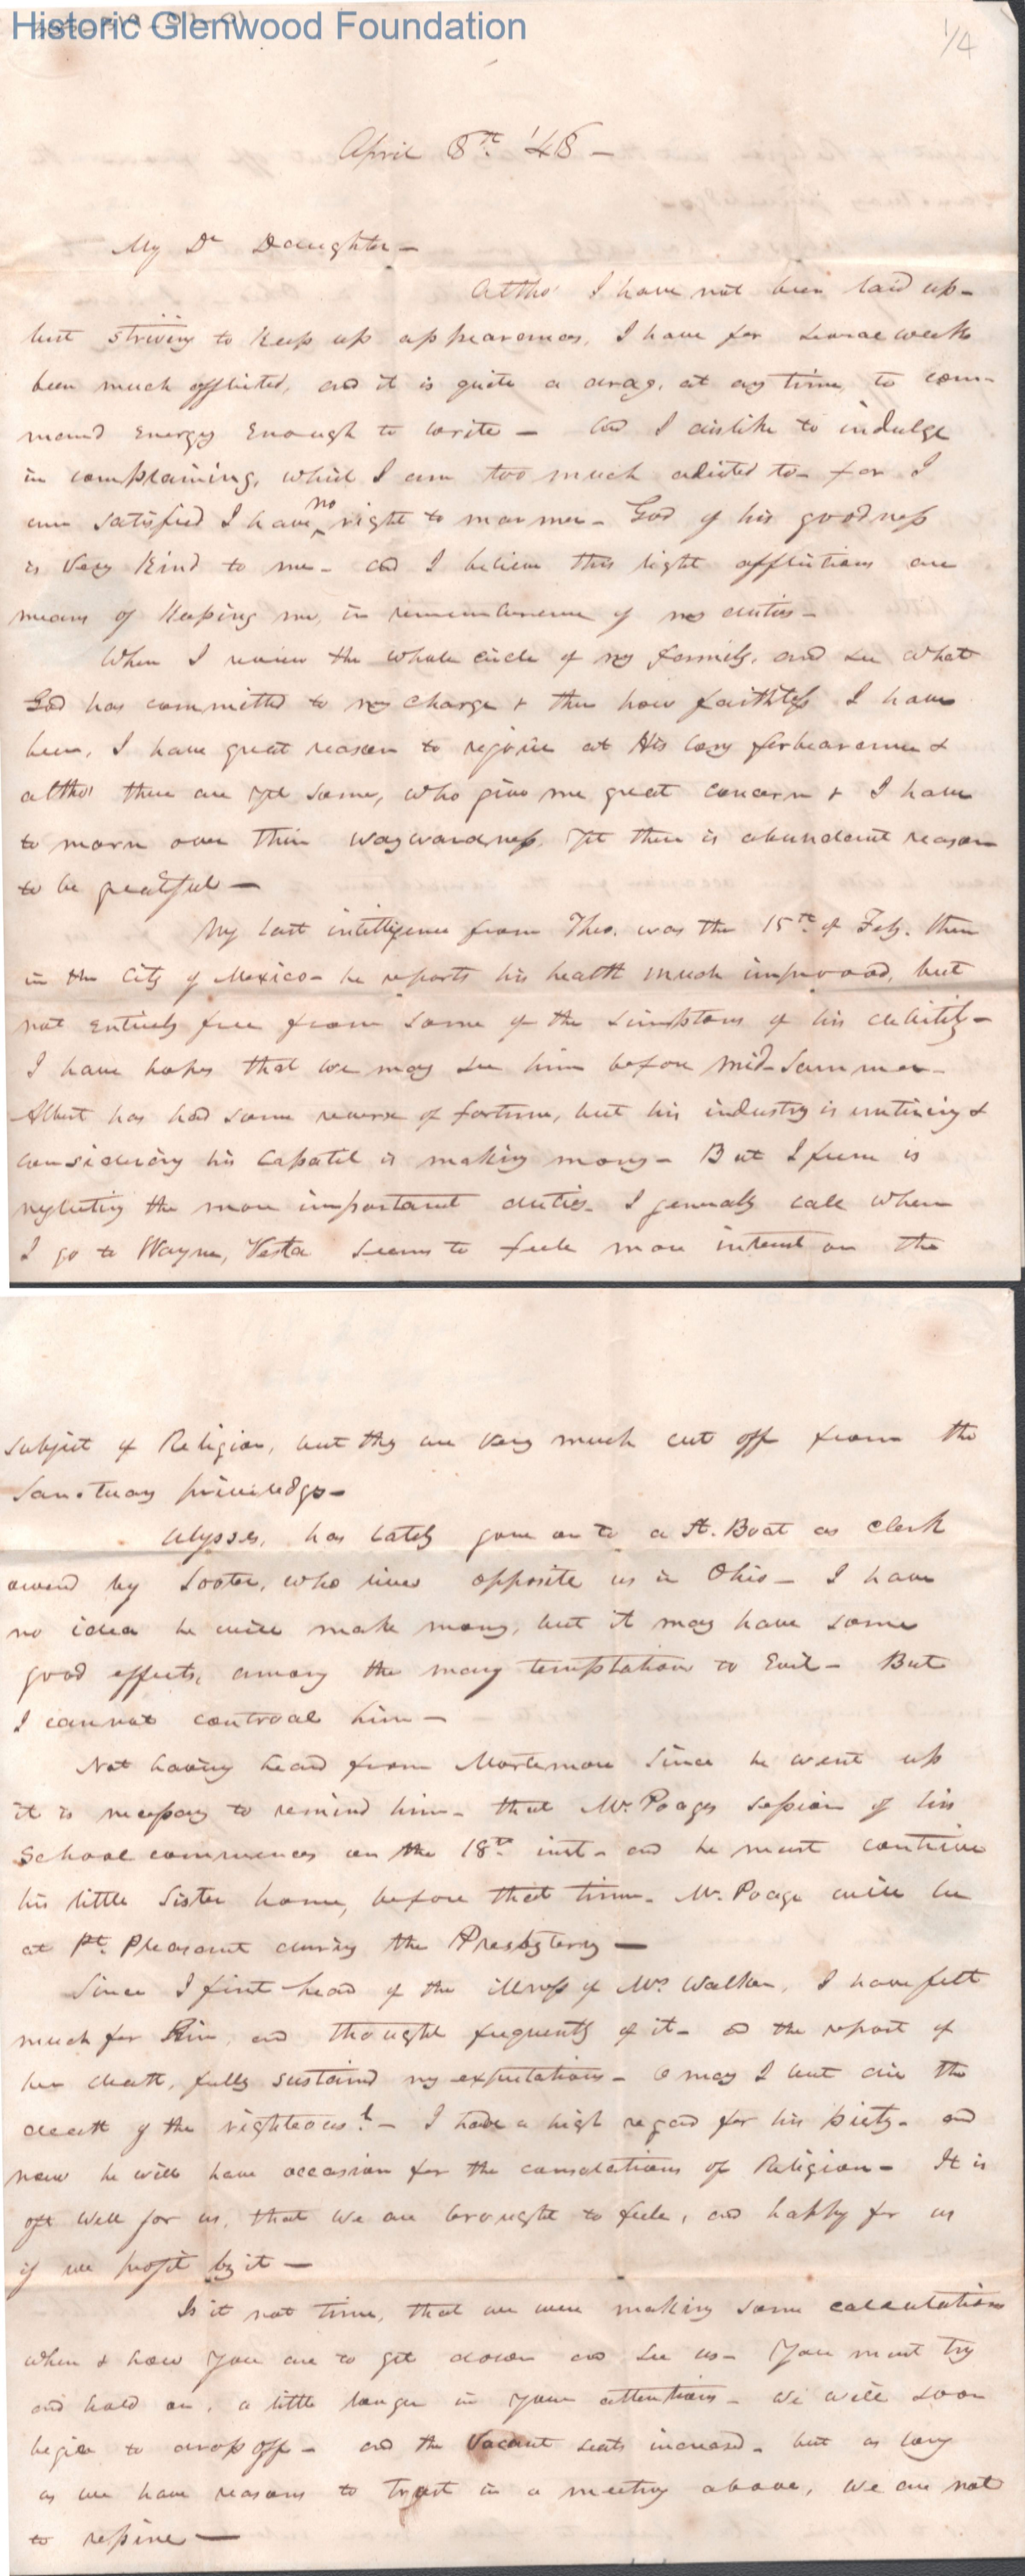 Historic Glenwood Foundation
1/4
April 8th '48 –
My Dr Daughter –
Altho' I have not been laid up –
but striving to keep up appearances, I have for several weeks
been much afflicted, and it is quite a drag, at any time, to com-
mand energy enough to write – and I dislike to indulge
in complaining, which I am too much adicted to – for I
am satisfied I have no right to mormer – God of his goodness
is very kind to me – and I believe this light afflictions are
means of keeping me, in remembrance of my duties –
When I review the whole circle of my family, and see what
God has committed to my charge & then how faithless I have
been, I have great reason to rejoice at His long forbearance &
altho' there are yet some, who give me great concern & I have
to morn over their waywardness, yet there is abundant reason
to be greatful –
My last intelligence from Theo. was the 15th of Feby. then
in the City of Mexico – he reports his health much improved, but
not entirely free from some of the simptoms of his debility –
I have hopes that we may see him before mid-summer –
Albert has had some reverse of fortune, but his industry is untiring &
considering his capatel is making mony – But I feare is
neglecting the more important duties – I generally call when
I go to Wayne, Vesta seems to feele more interest on the
subject of Religion, but they are very much cut off from the
Sanctuary priviledges –
Ulysses, has lately gone on to a St. Boat as clerk
owned by , who lives opposite us in Ohio – I have
no idea he will make mony, but it may have some
good effects, among the many temptations to Evil – But
I cannot controal him –
Not having heard from Mortemore since he went up
it is necessary to remind him – that Mr. Poages session of his
School commences on the 18th inst – and he must contrive
his little Sister home, before that time – Mr. Poage will be
at Pt. Pleasant during the Presbytery –
Since I first heard of the illness of Mrs Walker, I have felt
much for him, and thought frequently of it – and the report of
her death, fully sustained my expectations – O may I but die the
death of the righteous! – I have a high regard for his piety – and
now he will have occasion for the consolations of Religion – It is
oft well for us, that we are brought to feele, and happy for us
if we profit by it –
Is it not time, that we were making some calculations
when & how you are to get down and see us – You must try
and hold on, a little longer in your attentions – We will soon
begin to drop off – and the vacant seats increased – but as long
as we have reasons to trust in a meeting above, we are not
to repine –